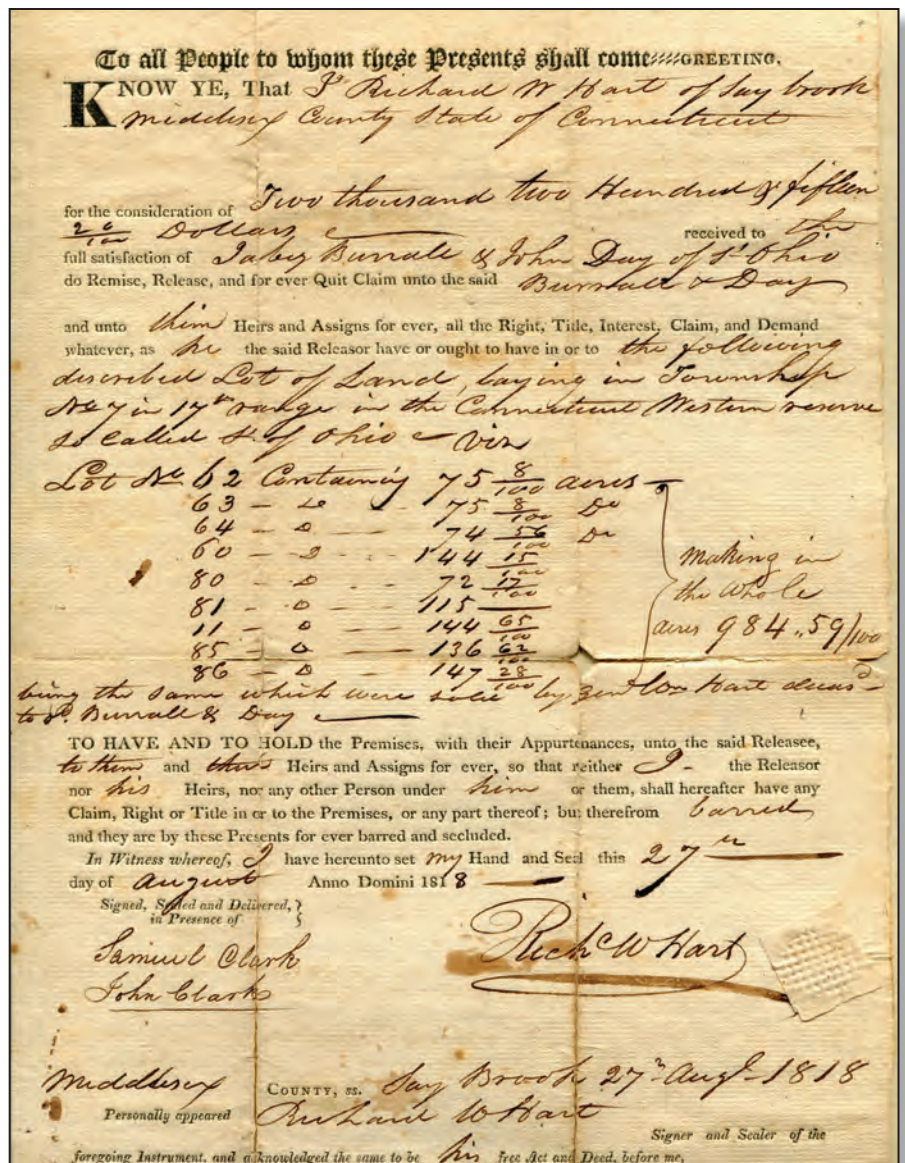 To all People to whom these Presents shall come GREETING.
KNOW YE, That I Richard W Hart of Say brook
Middlesex County State of Connecticut
for the consideration of Two thousand two Hundred & fifteen
20/100 Dollars received to the
full satisfaction of Jabez Burrall & John Day of St Ohio
do Remise, Release, and for ever Quit Claim unto the said Burrall & Day
and unto them Heirs and Assigns for ever, all the Right, Title, Interest, Claim, and Demand
whatever, as he the said Releasor have or ought to have in or to the following
described Lot of Land, laying in Township
No 7 in 17th range in the Connecticut Western reserve
so called St of Ohio viz
Lot No 62 Containing 75 8/100 acres
63 - Do - 75 8/100 Do
64 - D - 74 56/100 Do
60 - D - 144 15/100
80 - D - 72 17/100
81 - D - 115
11 - D - 144 65/100
85 - D - 136 62/100
86 - D - 147 28/100
making in
the whole
acres 984.59/100
being the same which were sold by Genl Wm Hart deceasd
to Sd. Burrall & Day
TO HAVE AND TO HOLD the Premises, with their Appurtenances, unto the said Releasee,
to them and their Heirs and Assigns for ever, so that neither I the Releasor
nor his Heirs, nor any other Person under him or them, shall hereafter have any
Claim, Right or Title in or to the Premises, or any part thereof; but therefrom barred
and they are by these Presents for ever barred and secluded.
In Witness whereof, I have hereunto set my Hand and Seal this 27th
day of August Anno Domini 1818
Signed, Sealed and Delivered,
in Presence of
Samuel Clark
John Clark
Richd W Hart
Middlesex COUNTY, ss. Say Brook 27th Augt 1818
Personally appeared Richard W Hart
Signer and Sealer of the
foregoing Instrument, and acknowledged the same to be his free Act and Deed, before me,